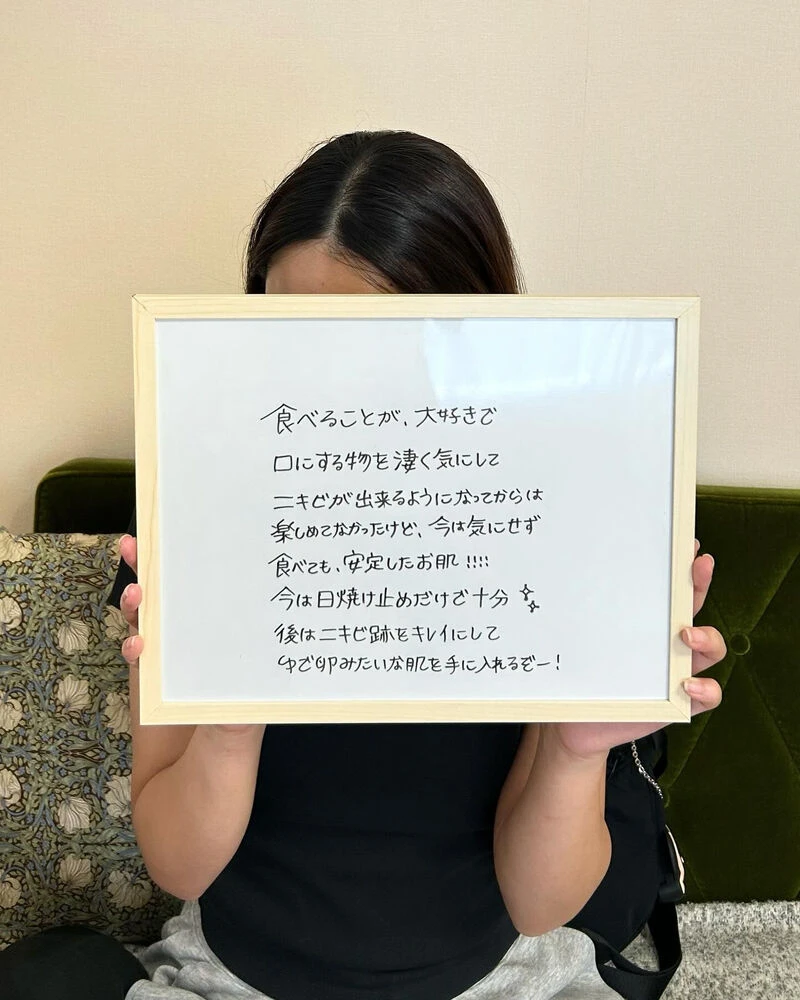 食べることが、大好きで
口にする物を凄く気にして
ニキビが出来るようになってからは
楽しめてなかったけど、今は気にせず
食べても、安定したお肌!!!!
今は日焼け止めだけで十分✨
後はニキビ跡をキレイにして
ゆで卵みたいな肌を手に入れるぞー!